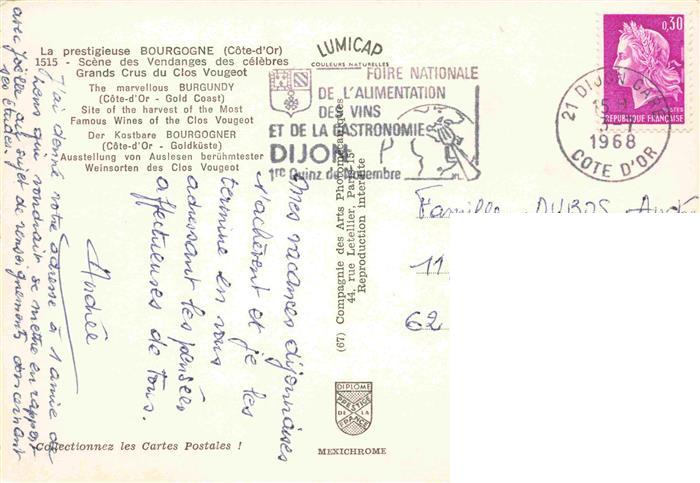 La prestigieuse BOURGOGNE (Côte-d'Or)
1515 - Scène des Vendanges des célèbres
Grands Crus du Clos Vougeot
The marvellous BURGUNDY
(Côte-d'Or - Gold Coast)
Site of the harvest of the Most
Famous Wines of the Clos Vougeot
Der Kostbare BOURGOGNER
(Côte-d'Or - Goldküste)
Ausstellung von Auslesen berühmtester
Weinsorten des Clos Vougeot
LUMICAP
COULEURS NATURELLES
FOIRE NATIONALE
DE L'ALIMENTATION
DES VINS
ET DE LA GASTRONOMIE
DIJON
1re Quinz de Novembre
21 DIJON GARE
1968
COTE D'OR
0,30
REPUBLIQUE FRANÇAISE
Mes vacances dijonnaises
s'achèvent et je les
termine en vous
adressant les pensées
affectueuses de tous.
Andrée
J'ai donné votre adresse à 1 amie de
qui voudrait se mettre en rapport
avec Joëlle au sujet de renseignements concernant
ses études.
Famille DUBOS
11
62
(67) Compagnie des Arts Photomécaniques
44, rue Letellier, Paris-15e
Reproduction interdite
DIPLOME
PRESTIGE
DE LA
FRANCE
MEXICHROME
Collectionnez les Cartes Postales !